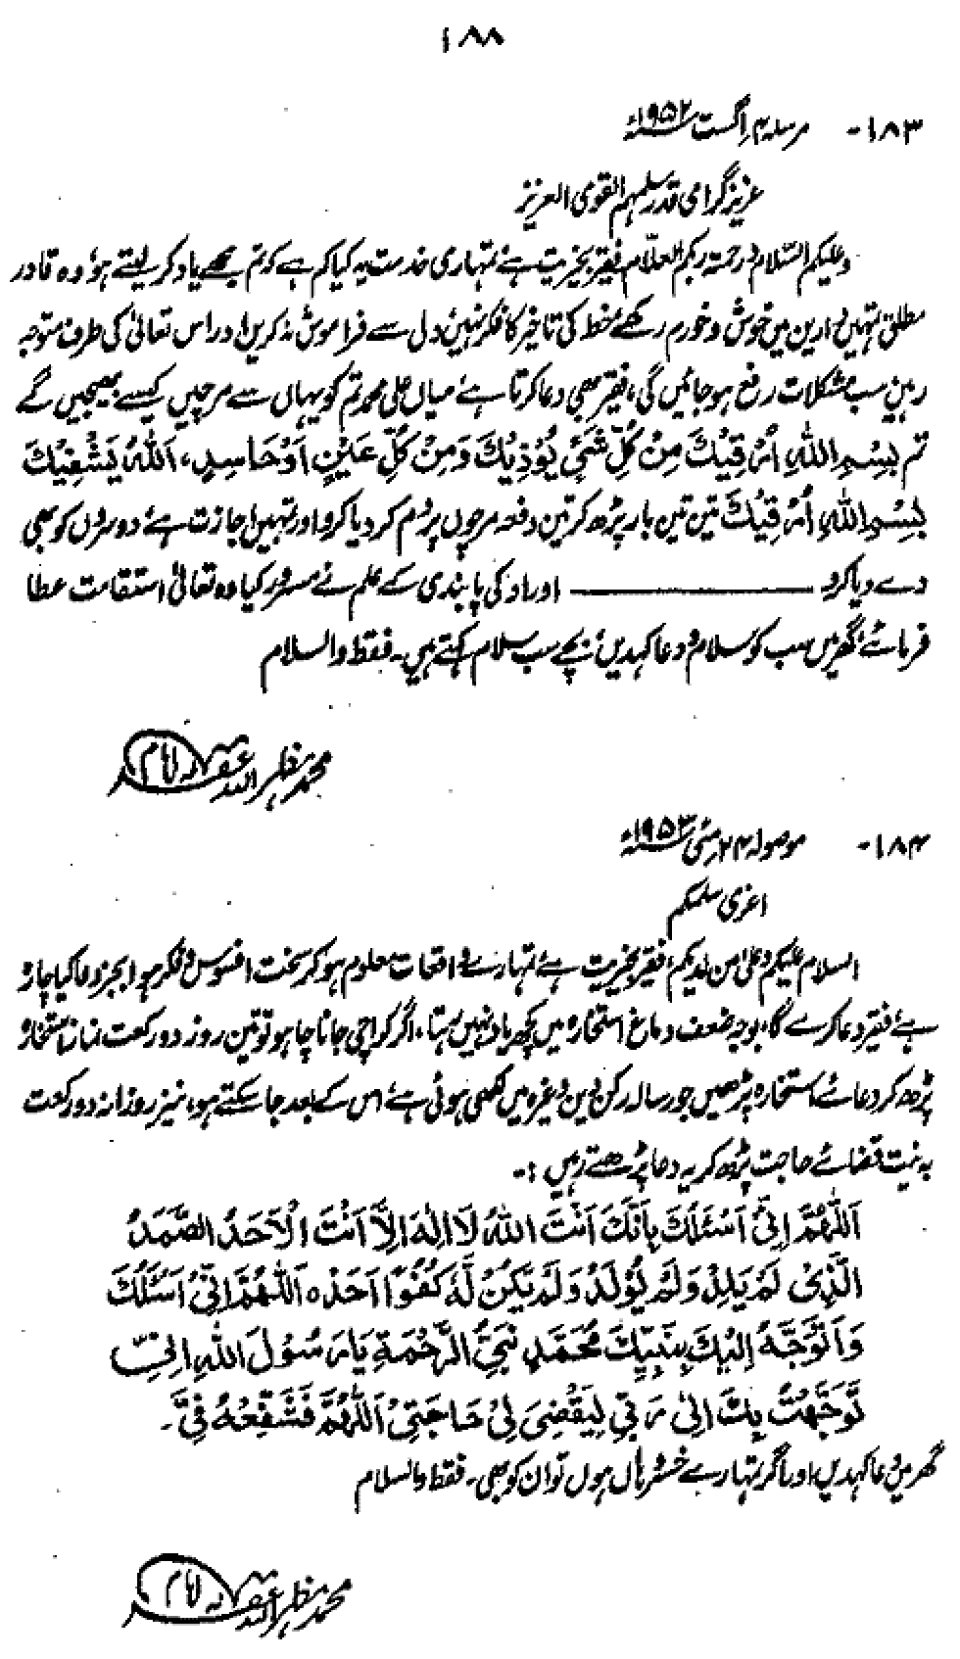 ۱۸۸
۱۸۳- مرسلہ ۴ اگست ۱۹۵۲ء
عزیز گرامی قدر سلمہم القوی العزیز
وعلیکم السّلام ورحمۃ ربکم العلّام فقیر بخیریت ہے، تمہاری خدمت یہ کیا کم ہے کہ تم مجھے یاد کر لیتے ہو، وہ قادر
مطلق تمہیں دارین میں خوش و خورم رکھے خط کی تاخیر کا فکر نہیں، دل سے فراموش نہ کریں اور اس تعالیٰ کی طرف متوجہ
رہیں سب مشکلات رفع ہو جائیں گی، فقیر بھی دعا کرتا ہے، میاں علی محمد تم کو یہاں سے مرچیں کیسے بھیجیں گے
تم بِسْمِ اللّٰهِ اَرْقِيْكَ مِنْ كُلِّ شَيْئٍ يُؤْذِيْكَ وَمِنْ كُلِّ عَيْنٍ اَوْحَاسِدٍ، اَللّٰهُ يَشْفِيْكَ
بِسْمِ اللّٰهِ اَرْقِيْكَ تین تین بار پڑھ کر تین دفعہ مرچوں پر دم کر دیا کرو اور تمہیں اجازت ہے، دوسروں کو بھی
دے دیا کرو ــــــــــــــــ اوراد کی پابندی کے علم نے مسرور کیا وہ تعالیٰ استقامت عطا
فرمائے، گھر میں سب کو سلام و دعا کہدیں، بچے سب سلام کہتے ہیں۔ فقط والسلام
محمد مظہر اللہ غفرلہ امام
۱۸۴- موصولہ ۲۴ مئی ۱۹۵۳ء
اعزی سلمکم
السلام علیکم وعلیٰ من لدیکم، فقیر بخیریت ہے، تمہارے واقعات معلوم ہو کر سخت افسوس و فکر ہوا بجز دعا کیا چارہ
ہے، فقیر دعا کرے گا، بوجہ ضعف دماغ استخارہ میں کچھ یاد نہیں رہتا، اگر کراچی جانا چاہو تو تین روز دو رکعت نماز استخارہ
پڑھ کر دعائے استخارہ پڑھیں جو رسالہ رکن دین وغیرہ میں لکھی ہوئی ہے، اس کے بعد جا سکتے ہو، نیز روزانہ دو رکعت
بہ نیت قضائے حاجت پڑھ کر یہ دعا پڑھتے رہیں :۔
اَللّٰهُمَّ اِنِّيْ اَسْئَلُكَ بِاَنَّكَ اَنْتَ اللّٰهُ لَا اِلٰهَ اِلَّا اَنْتَ الْاَحَدُ الصَّمَدُ
الَّذِيْ لَمْ يَلِدْ وَلَمْ يُوْلَدْ وَلَمْ يَكُنْ لَّهٗ كُفُوًا اَحَدْ ہ اَللّٰهُمَّ اِنِّيْ اَسْئَلُكَ
وَاَتَوَجَّهُ اِلَيْكَ بِنَبِيِّكَ مُحَمَّدٍ نَّبِيِّ الرَّحْمَةِ يَارَسُوْلَ اللّٰهِ اِنِّيْ
تَوَجَّهْتُ بِكَ اِلٰى رَبِّيْ لِيَقْضِىَ لِيْ حَاجَتِيْ اَللّٰهُمَّ فَشَفِّعْهُ فِيَّ۔
گھر میں دعا کہدیں اور اگر تمہارے خسر وہاں ہوں تو ان کو بھی۔ فقط والسلام
محمد مظہر اللہ غفرلہ امام